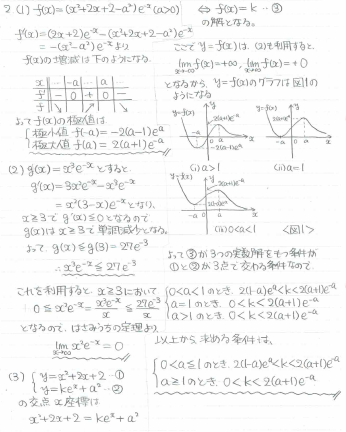 2 (1) f(x)=(x²+2x+2-a²)e⁻ˣ (a>0)
f'(x)=(2x+2)e⁻ˣ-(x²+2x+2-a²)e⁻ˣ
=-(x²-a²)e⁻ˣ より
f(x)の増減は下のようになる.
x … -a … a …
f' - 0 + 0 -
f ↘ ↗ ↘
よって f(x)の極値は
極小値 f(-a)=-2(a-1)eᵃ
極大値 f(a)=2(a+1)e⁻ᵃ
(2) g(x)=x³e⁻ˣとすると.
g'(x)=3x²e⁻ˣ-x³e⁻ˣ
=x²(3-x)e⁻ˣとなり,
x≧3で g'(x)≦0となるので
g(x)はx≧3で単調減少となる。
よって. g(x)≦g(3)=27e⁻³
∴x³e⁻ˣ≦27e⁻³
これを利用すると. x≧3において
0≦x²e⁻ˣ=x³e⁻ˣ/x≦27e⁻³/x
となるので. はさみうちの定理より
lim x→∞ x²e⁻ˣ=0
(3) y=x²+2x+2 …①
y=keˣ+a² …②
の交点 x座標は
x²+2x+2=keˣ+a²
⇔ f(x)=k …③
の解となる。
ここで y=f(x)は, (2)を利用すると.
lim x→-∞ f(x)=+∞, lim x→∞ f(x)=+0
となるから, y=f(x)のグラフは図1の
ようになる
y=f(x) y 2(a+1)e⁻ᵃ -a 0 a x -2(a-1)eᵃ
(i) a>1
y=f(x) y 2(a+1)e⁻ᵃ -a 0 a x
(ii) a=1
y=f(x) y 2(a+1)e⁻ᵃ -a 0 a x
(iii) 0<a<1 <図1>
よって③が3つの実数解をもつ条件が
①と②が3点で交わる条件なので.
0<a<1のとき, 2(1-a)eᵃ<k<2(a+1)e⁻ᵃ
a=1のとき, 0<k<2(a+1)e⁻ᵃ
a>1のとき, 0<k<2(a+1)e⁻ᵃ
以上から 求める条件は,
0<a≦1のとき, 2(1-a)eᵃ<k<2(a+1)e⁻ᵃ
a≧1のとき, 0<k<2(a+1)e⁻ᵃ